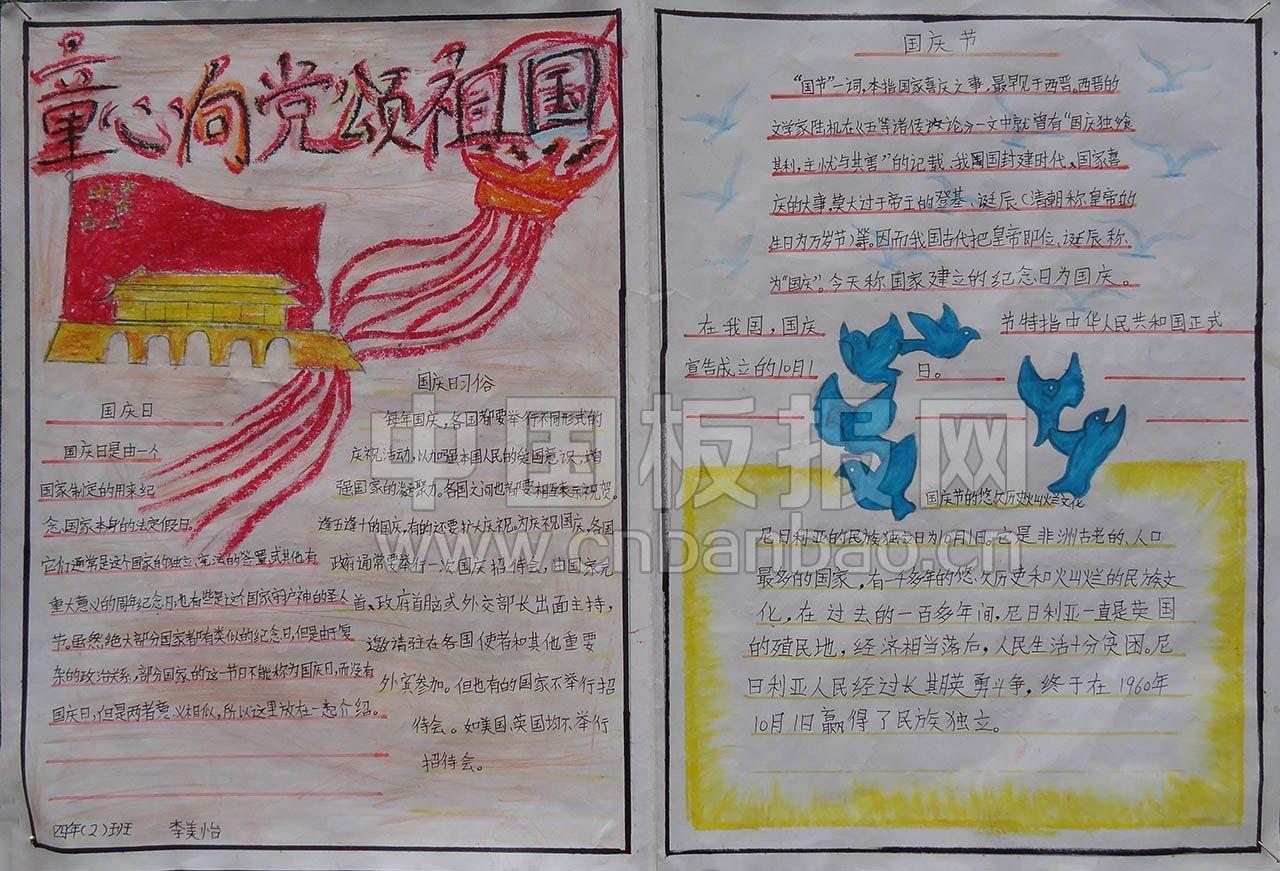 童心向党颂祖国
国庆日
国庆日是由一个
国家制定的用来纪
念国家本身的法定假日。
它们通常是这个国家的独立、宪法的签署或其他有
重大意义的周年纪念日,也有些是这个国家守护神的圣人
节。虽然绝大部分国家都有类似的纪念日,但是由于复
杂的政治关系,部分国家的这一节日不能称为国庆日,而没有
国庆日,但是两者意义相似,所以这里放在一起介绍。
四年(2)班班
李美怡
国庆日习俗
每年国庆,各国都要举行不同形式的
庆祝活动,以加强本国人民的爱国意识,增
强国家的凝聚力。各国之间也都要相互表示祝贺。
逢五逢十的国庆,有的还要扩大庆祝。为庆祝国庆,各国
政府通常要举行一次国庆招待会,由国家元
首、政府首脑或外交部长出面主持,
邀请驻在各国使者和其他重要
外宾参加。但也有的国家不举行招
待会。如美国、英国均不举行
招待会。
国庆节
“国节”一词,本指国家喜庆之事,最早见于西晋。西晋的
文学家陆机在《五等诸侯论》一文中就曾有“国庆独飨
其利,主忧与其害”的记载、我国国封建时代、国家喜
庆的大事,莫大过于帝王的登基、诞辰(清朝称皇帝的
生日为万岁节)等。因而我国古代把皇帝即位、诞辰称
为“国庆”。今天称国家建立的纪念日为国庆。
在我国,国庆节特指中华人民共和国正式
宣告成立的10月1日。
国庆节的悠久历史灿烂文化
尼日利亚的民族独立日为10月1日。它是非洲古老的、人口
最多的国家,有一千多年的悠久历史和灿烂的民族文
化,在过去的一百多年间,尼日利亚一直是英国
的殖民地,经济相当落后,人民生活十分贫困。尼
日利亚人民经过长期英勇斗争,终于在1960年
10月1日赢得了民族独立。
中国板报网
www.cnbanbao.cn